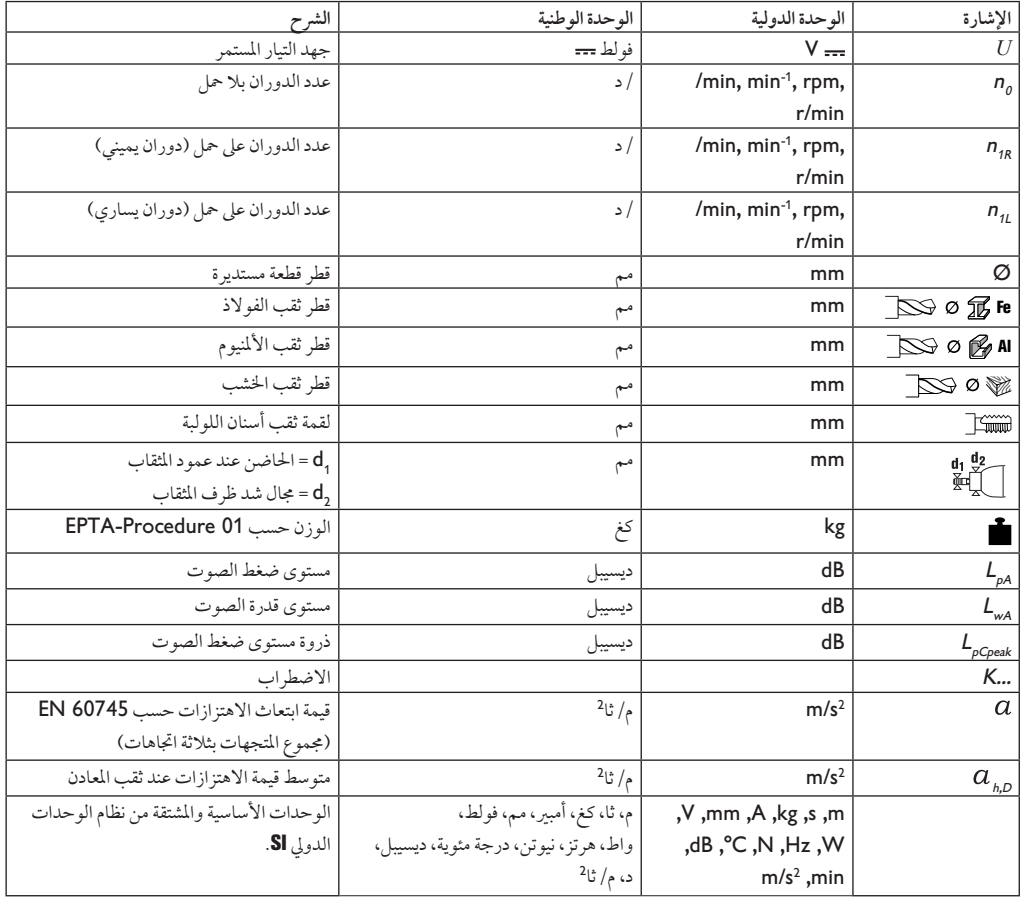 الإشارة الوحدة الدولية الوحدة الوطنية الشرح
U V ⎓ فولط ⎓ جهد التيار المستمر
n0 /min, min-1, rpm, / د عدد الدوران بلا حمل
r/min
n1R /min, min-1, rpm, / د عدد الدوران على حمل (دوران يميني)
r/min
n1L /min, min-1, rpm, / د عدد الدوران على حمل (دوران يساري)
r/min
Ø mm مم قطر قطعة مستديرة
Fe Ø mm مم قطر ثقب الفولاذ
Al Ø mm مم قطر ثقب الألمنيوم
Ø mm مم قطر ثقب الخشب
mm مم لقمة ثقب أسنان اللولبة
d1 d2 mm مم d1 = الحاضن عند عمود المثقاب
d2 = مجال شد ظرف المثقاب
kg كغ الوزن حسب EPTA-Procedure 01
LpA dB ديسيبل مستوى ضغط الصوت
LwA dB ديسيبل مستوى قدرة الصوت
LpCpeak dB ديسيبل ذروة مستوى ضغط الصوت
K... الاضطراب
a m/s2 م/ ثا2 قيمة ابتعاث الاهتزازات حسب EN 60745
(مجموع المتجهات بثلاثة اتجاهات)
ah,D m/s2 م/ ثا2 متوسط قيمة الاهتزازات عند ثقب المعادن
m, s, kg, A, mm, V, م، ثا، كغ، أمبير، مم، فولط، الوحدات الأساسية والمشتقة من نظام الوحدات
W, Hz, N, °C, dB, واط، هرتز، نيوتن، درجة مئوية، ديسيبل، الدولي SI.
min, m/s2 د، م/ ثا2